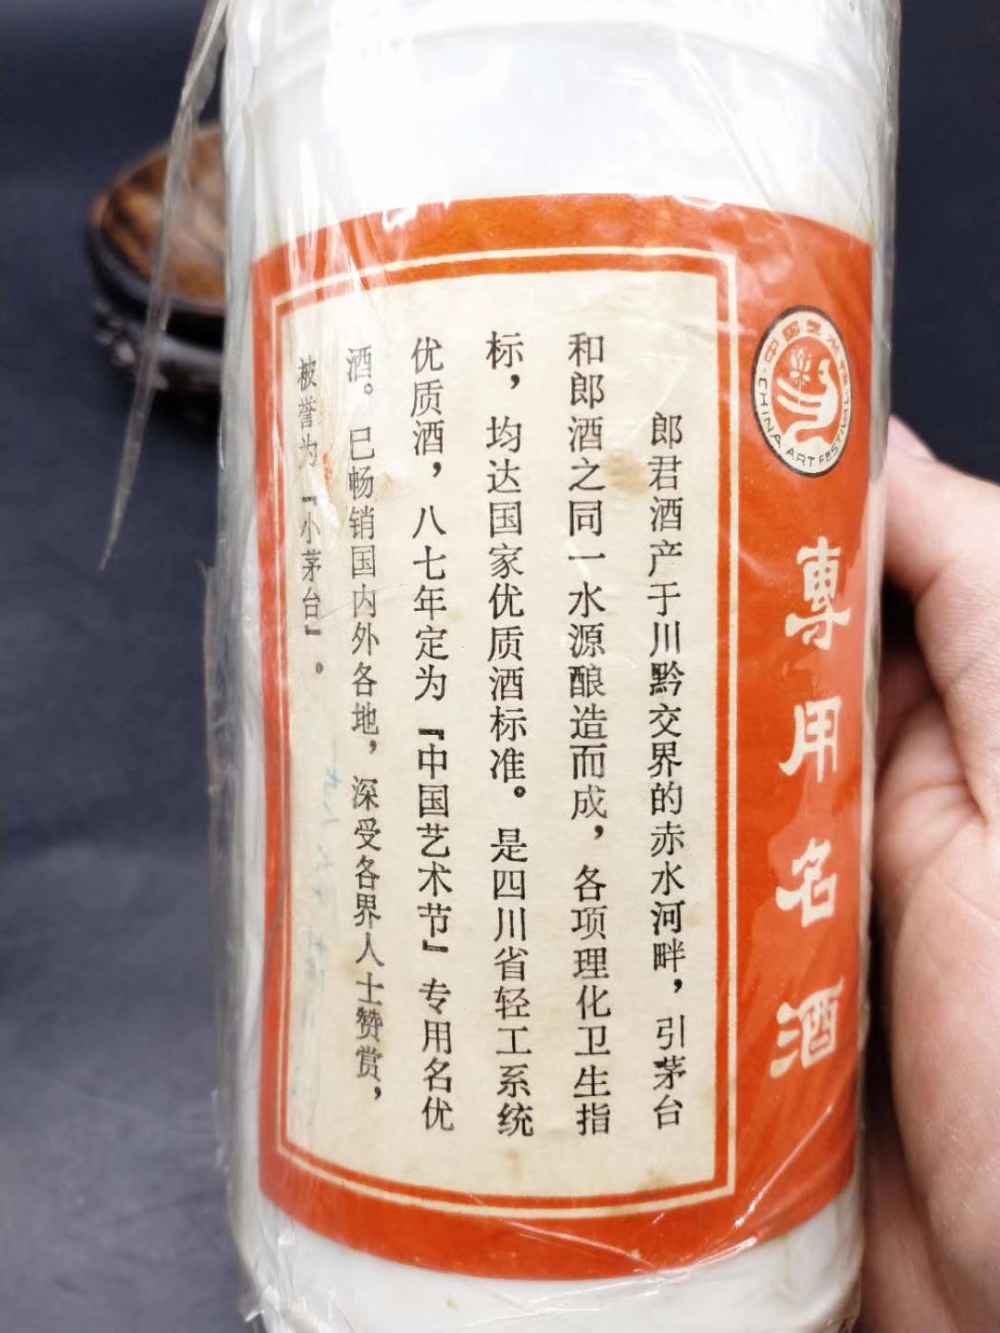 郎君酒产于川黔交界的赤水河畔，引茅台
和郎酒之同一水源酿造而成，各项理化卫生指
标，均达国家优质酒标准。是四川省轻工系统
优质酒，八七年定为『中国艺术节』专用名优
酒。已畅销国内外各地，深受各界人士赞赏，
被誉为『小茅台』。
中国艺术节
CHINA ART FESTIVAL
專用名酒